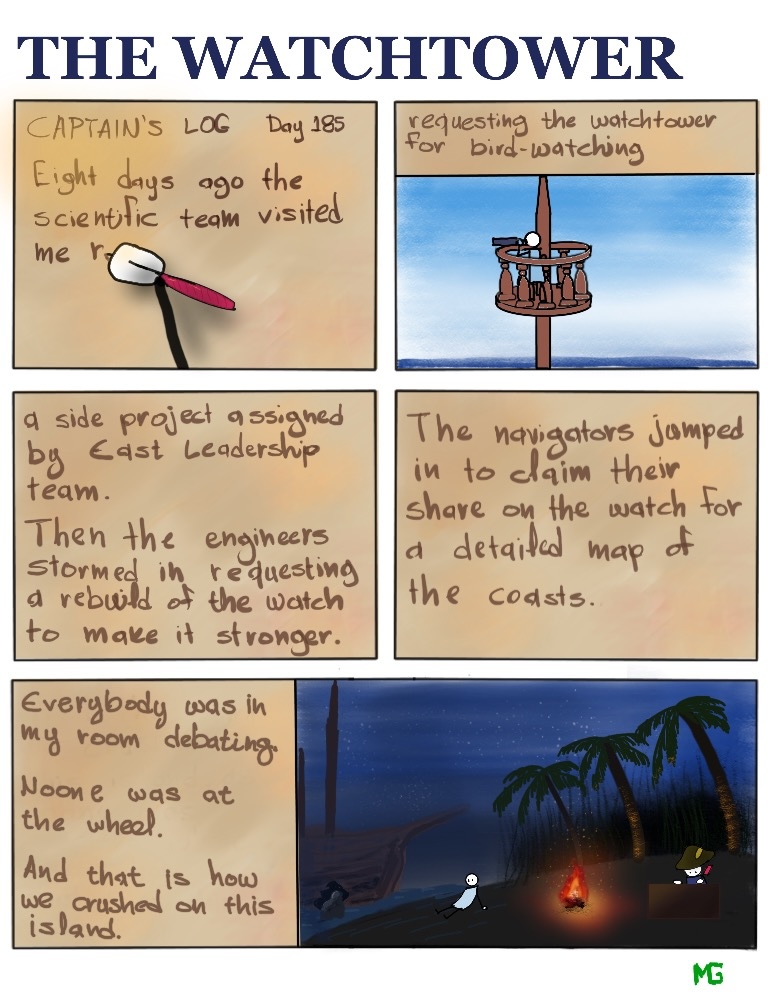 THE WATCHTOWER
CAPTAIN'S LOG Day 185
Eight days ago the
scientific team visited
me r
requesting the watchtower
for bird-watching
a side project assigned
by East Leadership
team.
Then the engineers
stormed in requesting
a rebuild of the watch
to make it stronger.
The navigators jumped
in to claim their
share on the watch for
a detailed map of
the coasts.
Everybody was in
my room debating.
Noone was at
the wheel.
And that is how
we crushed on this
island.
MG